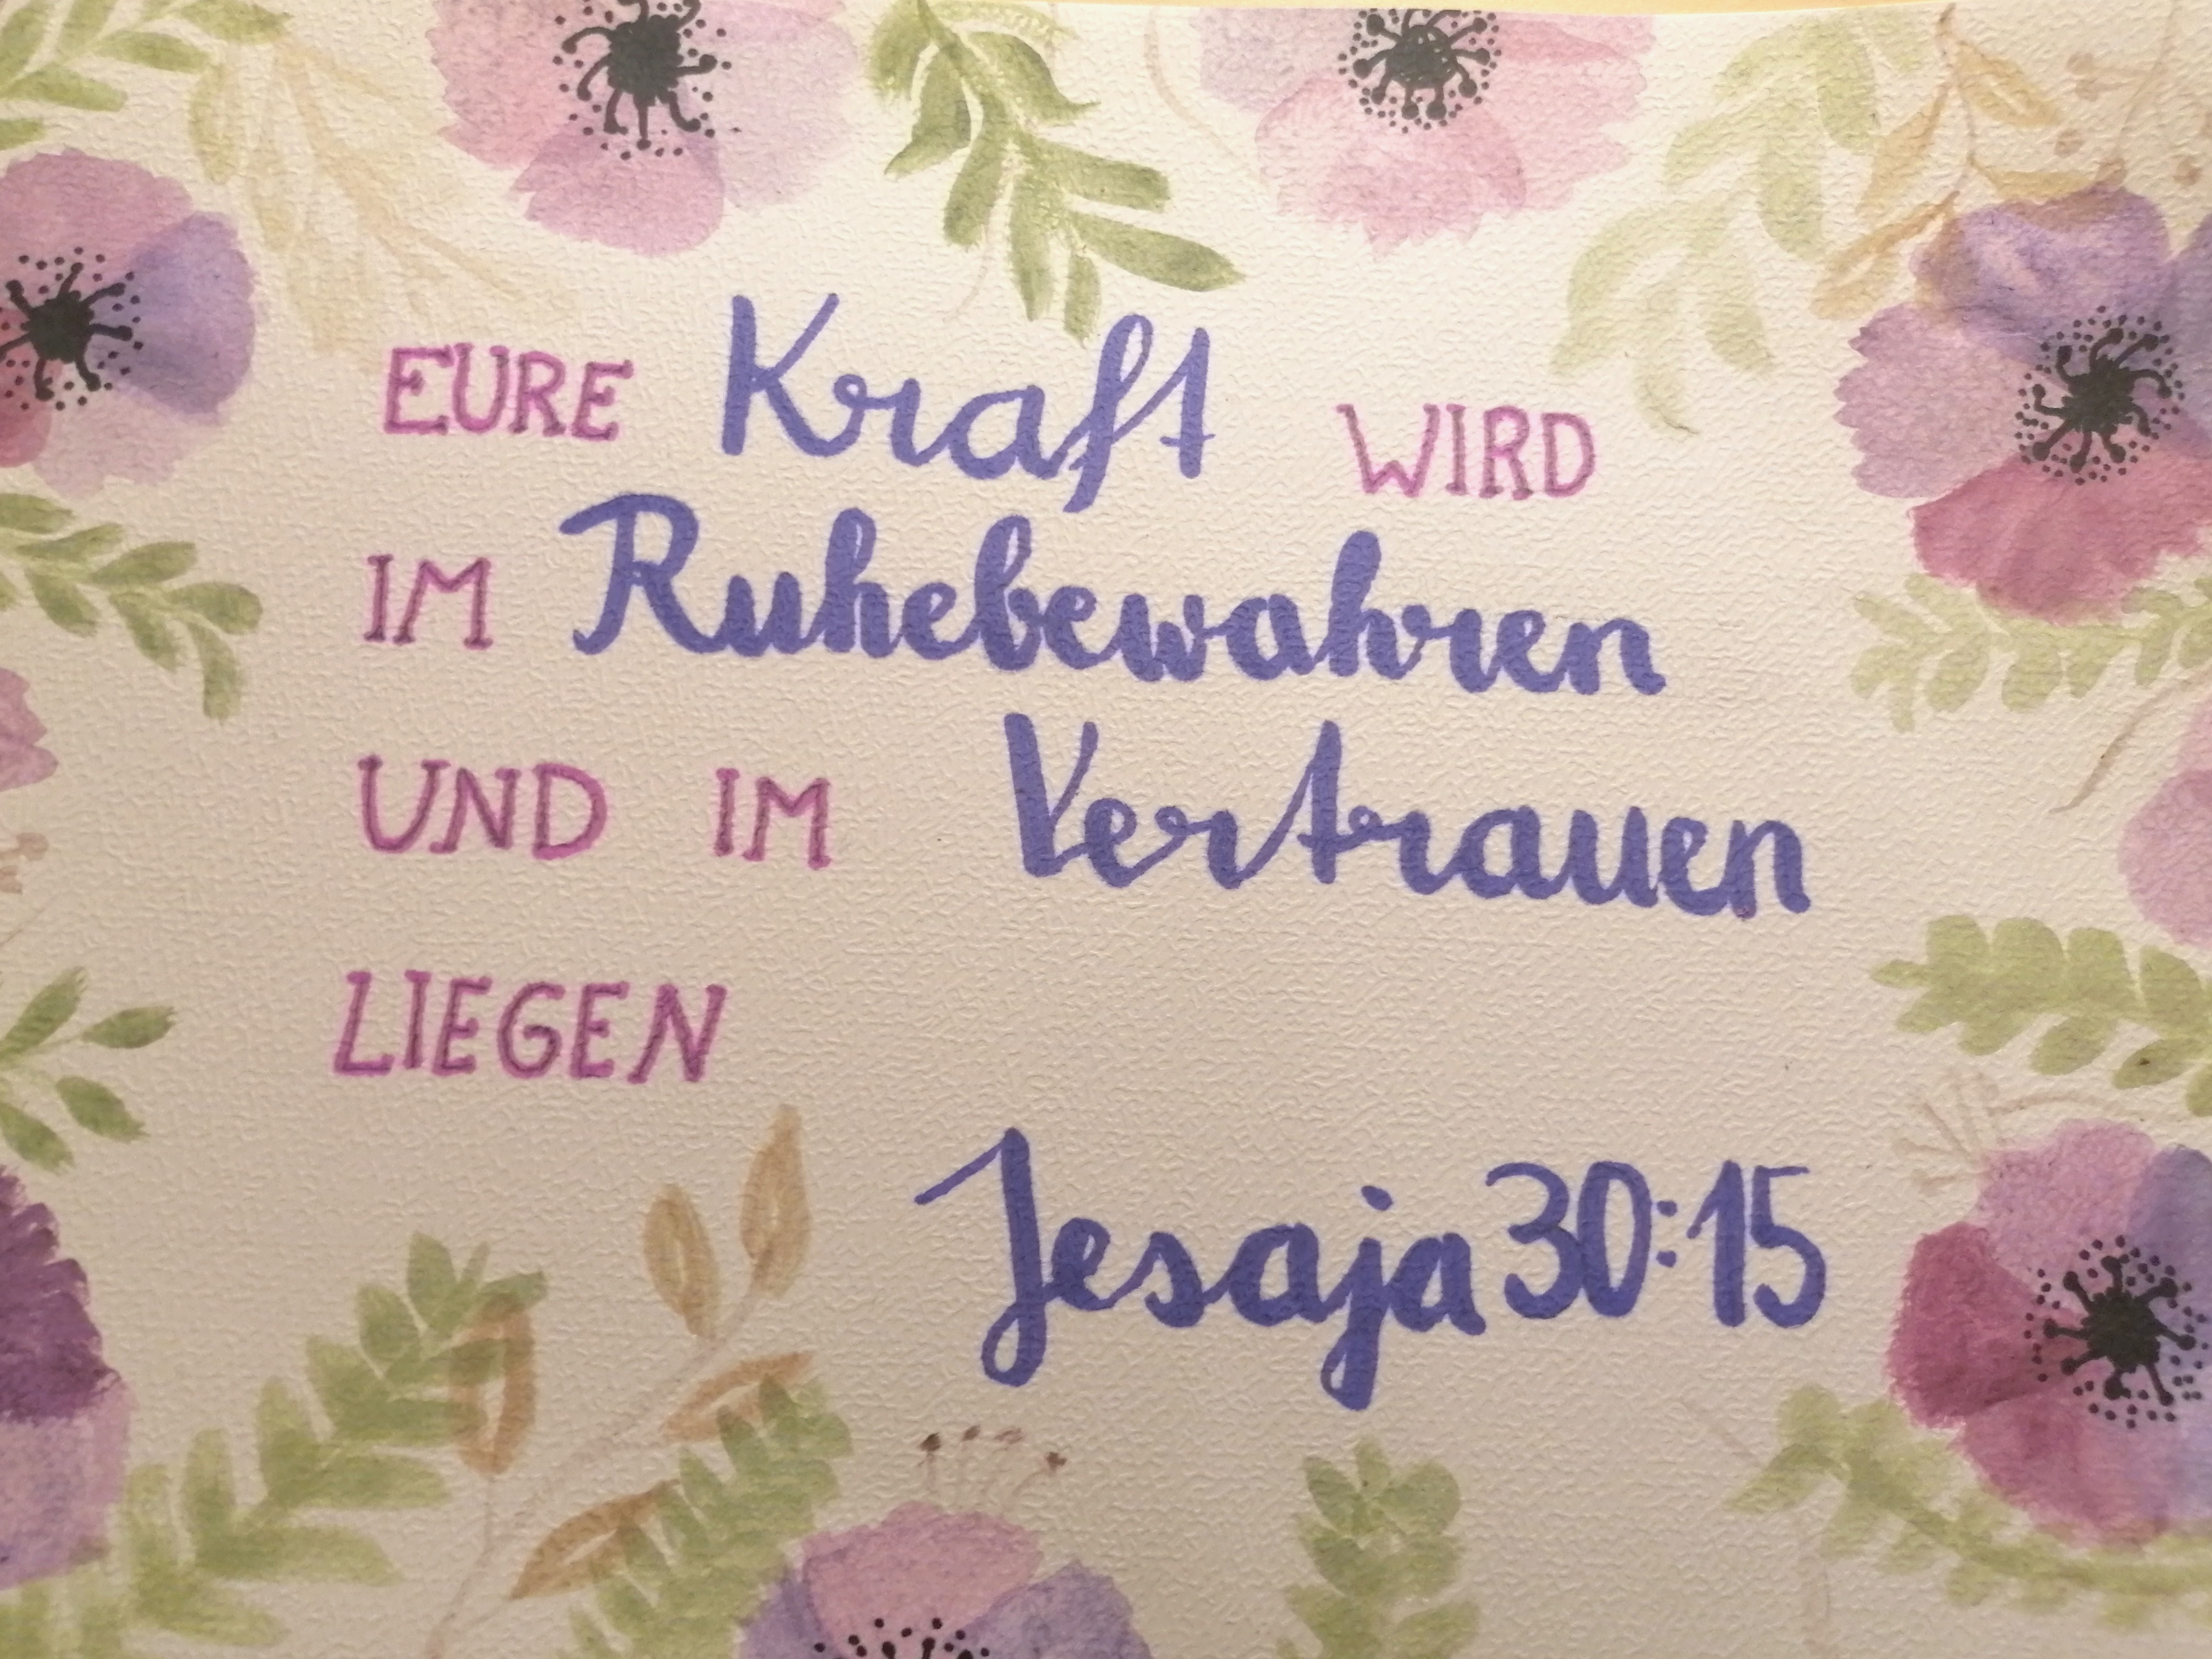 EURE Kraft WIRD
IM Ruhebewahren
UND IM Vertrauen
LIEGEN
Jesaja 30:15